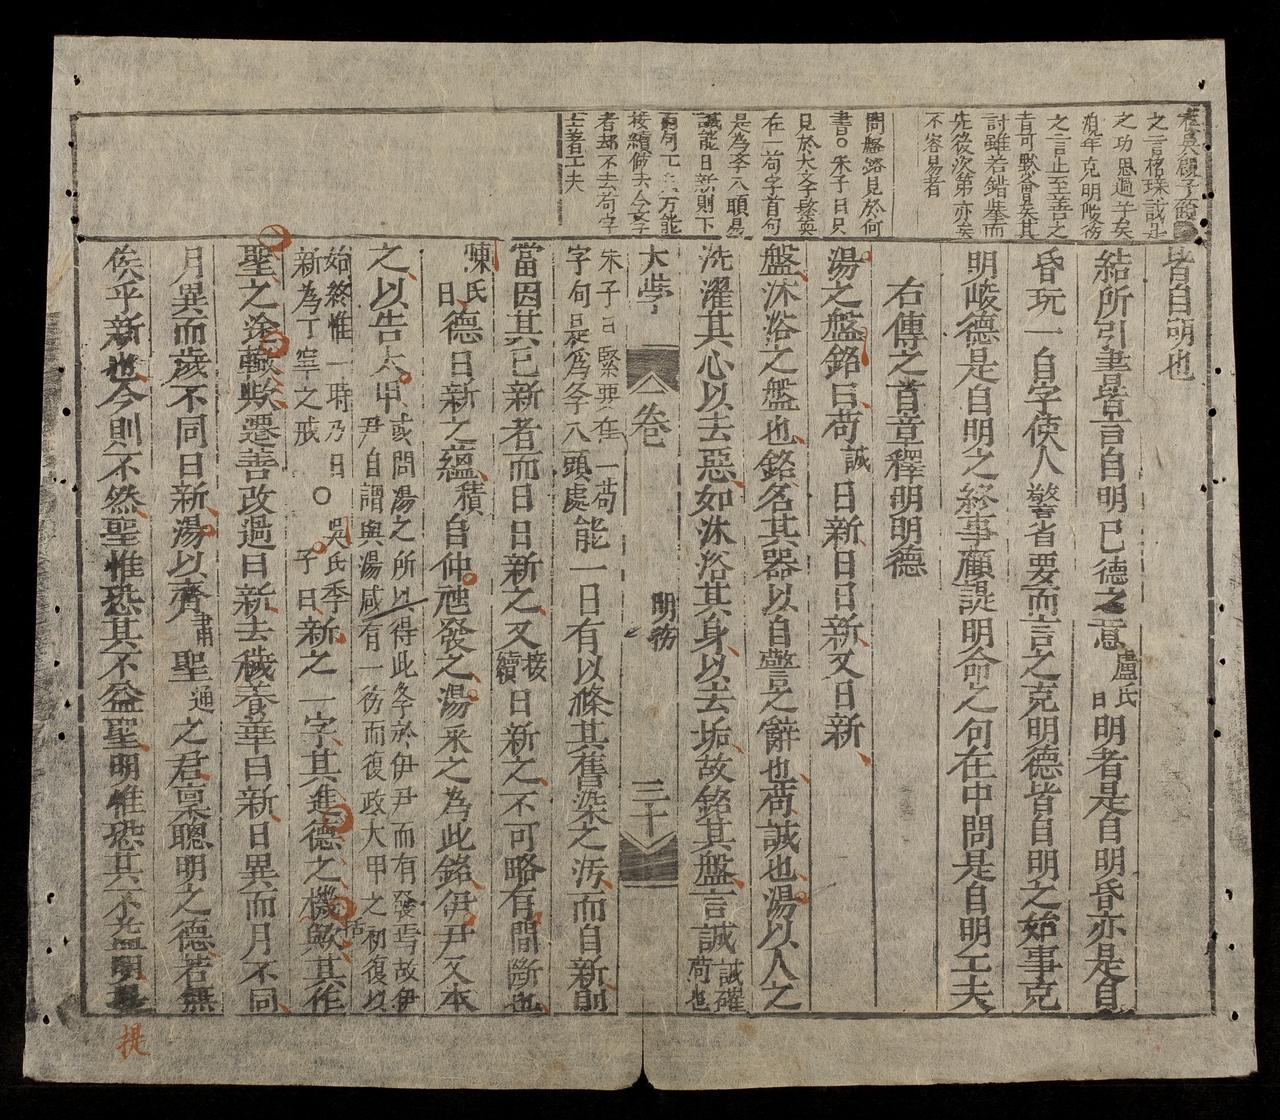 之言格珠誠是
之功思過半矣
之言止至善之
旨可黙會矣其
討雖若錯雜而
先後次第亦矣
不容易者
問盤銘見於何
書○朱子曰只
見於大文字緊要
在一苟字首句
是為夅八頭㫷
誠能日新則下
兩句工夫方能
接續做去今文字
者却不去苟字
上着工夫
皆自明也
結所引書皆言自明已德之意盧氏曰明者是自明昏亦是自
昏玩一自字使人警省要而言之克明德皆自明之始事克
明峻德是自明之終事顧諟明命之句在中間是自明工夫
右傳之首章釋明明德
湯之盤銘曰苟誠日新日日新又日新
盤沐浴之盤也銘名其器以自警之辭也苟誠也湯以人之
洗濯其心以去惡如沐浴其身以去垢故銘其盤言誠誠確苟也
大學 卷 明新 三十
朱子曰緊要在一苟字句是為夅八頭處能一日有以滌其舊染之污而自新則
當因其已新者而日日新之又接續日新之不可略有間斷也
陳氏曰德日新之蘊積自仲虺發之湯采之為此銘伊尹又本
之以告太甲或問湯之所以得此夅於伊尹而有發焉故伊尹自謂與湯咸有一徳而復政太甲之初復以
始終惟一時乃日新為丁寧之戒○吳氏季子曰新之一字其進德之機歟其作
聖之途轍歟遷善改過曰新去穢養華曰新日異而月不同
月異而歲不同日新湯以齊肅聖通之君稟聰明之德若無
俟乎新也今則不然聖惟恐其不益聖明惟恐其不益明是
提